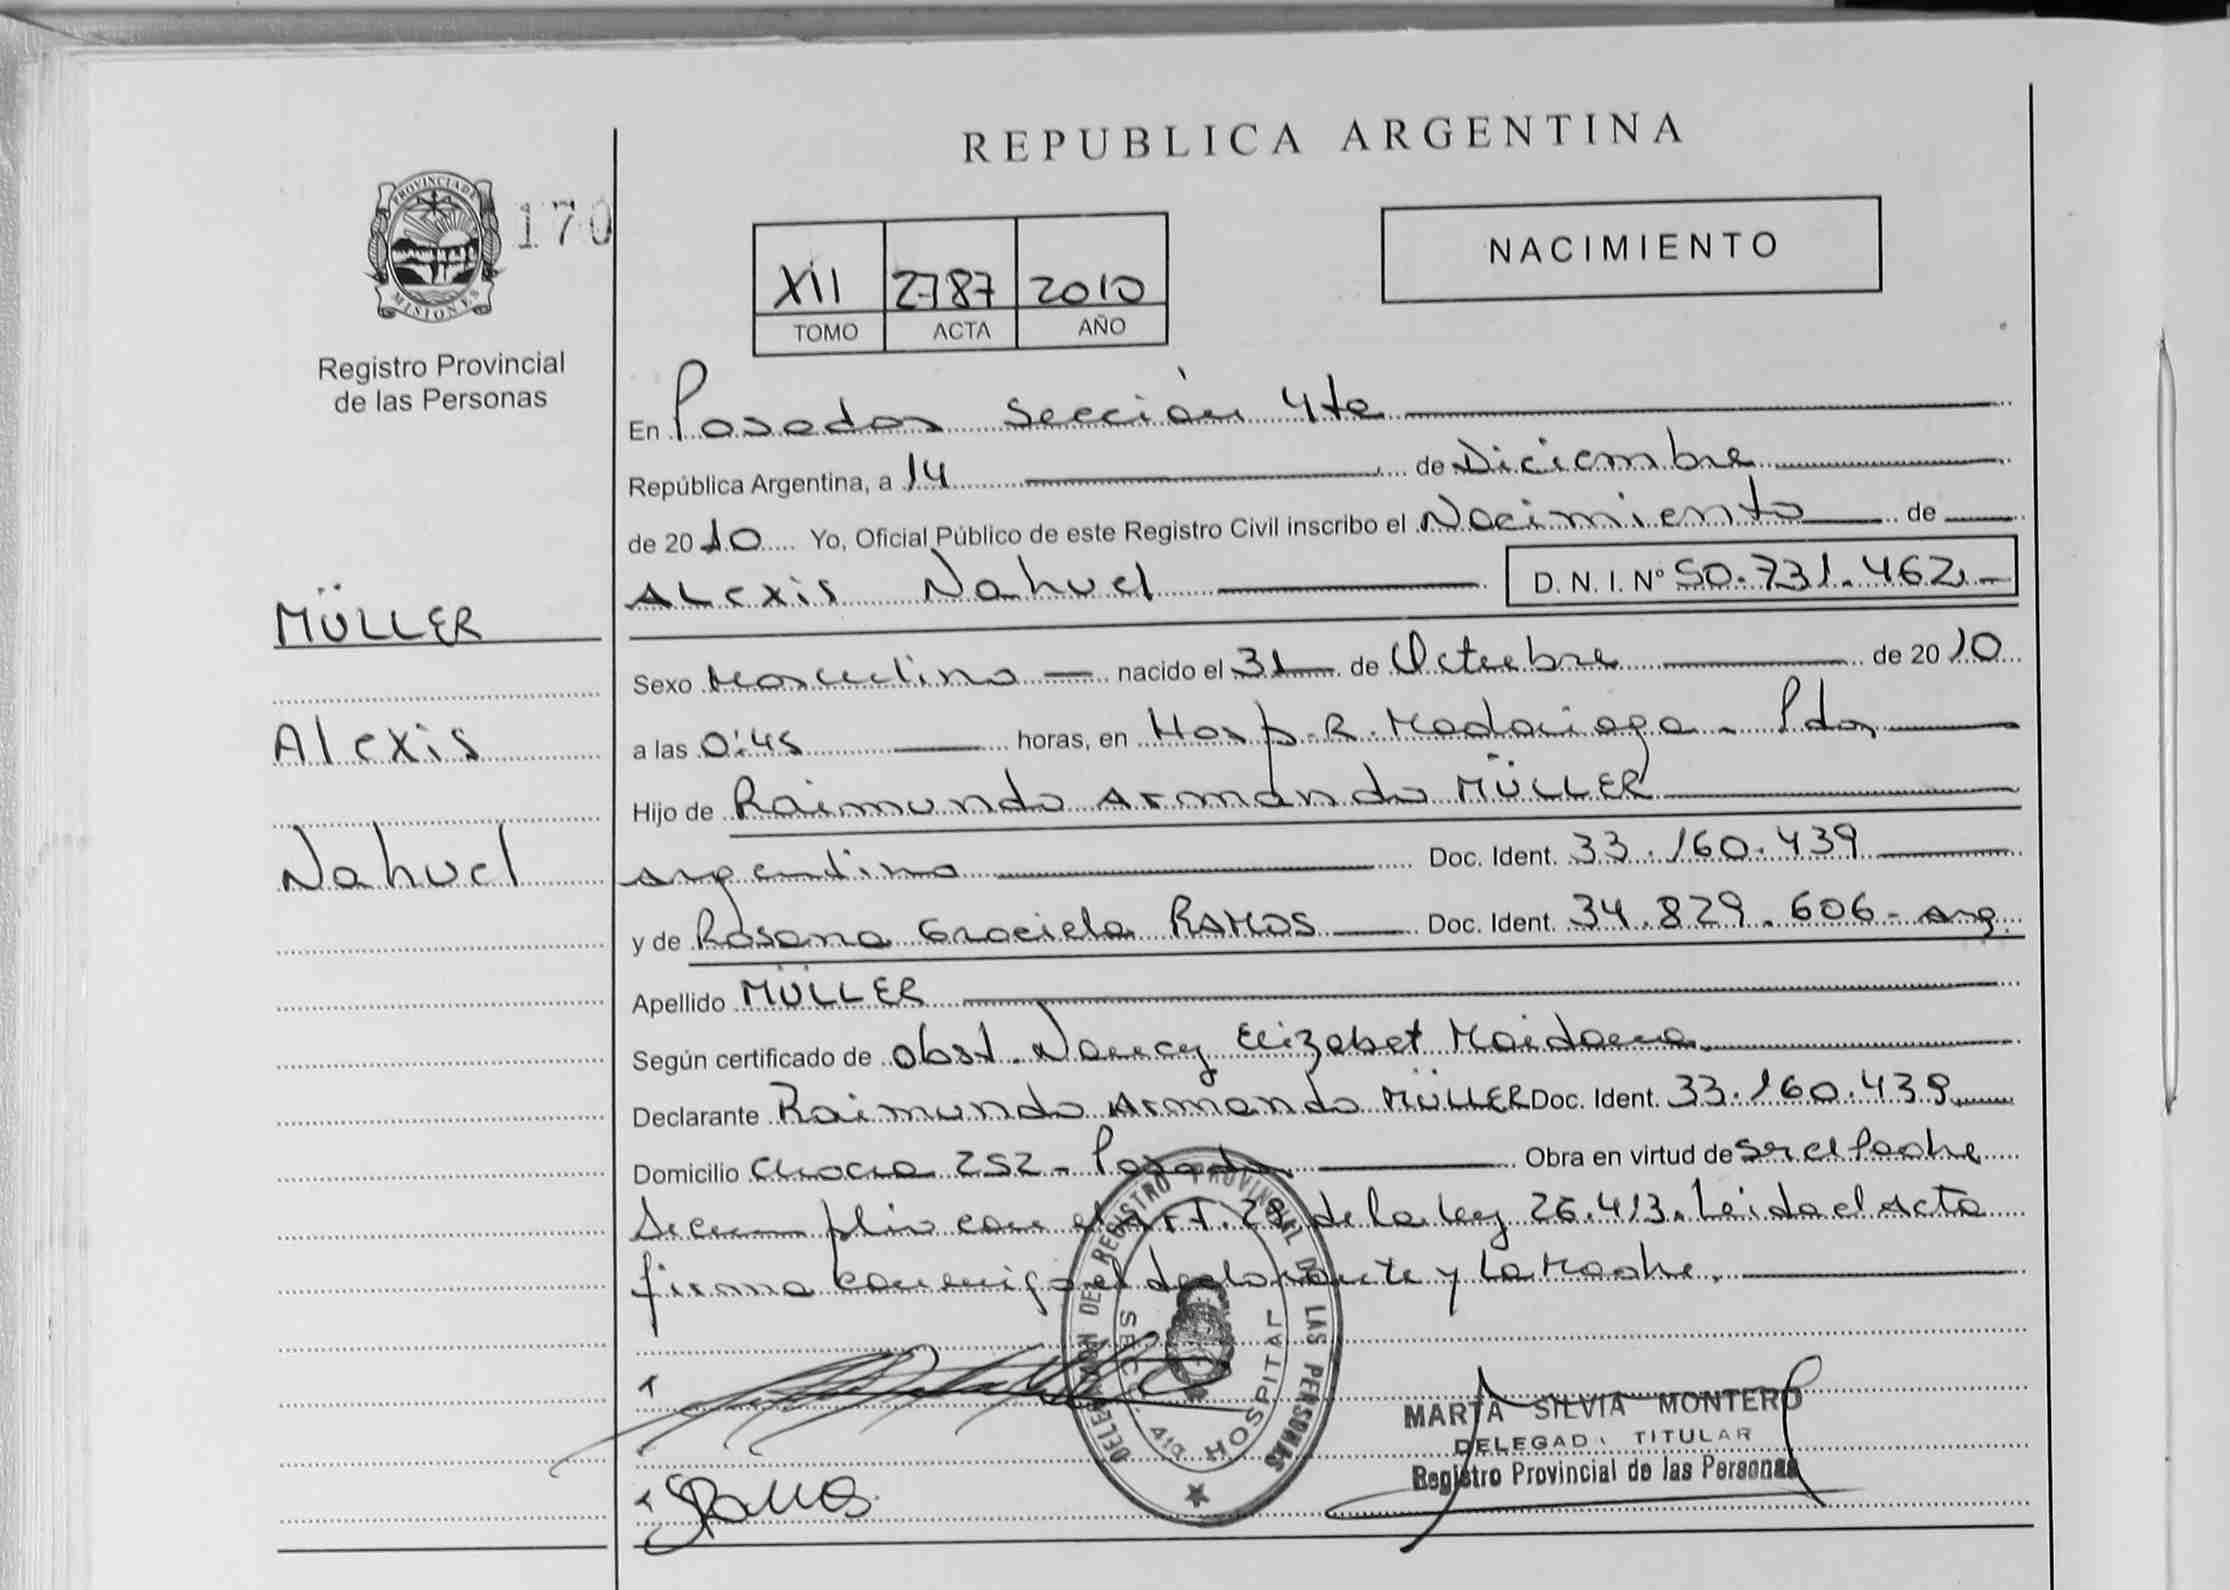 REPUBLICA ARGENTINA
PROVINCIA DE
MISIONES
170
Registro Provincial
de las Personas
XII 2787 2010
TOMO ACTA AÑO
NACIMIENTO
MÜLLER
Alexis
Nahuel
En Posadas Sección 4ta
República Argentina, a 14 de Diciembre
de 2010 Yo, Oficial Público de este Registro Civil inscribo el Nacimiento de
Alexis Nahuel D. N. I. N° 50.731.462.-
Sexo Masculino nacido el 31 de Octubre de 2010
a las 0:45 horas, en Hosp. R. Madariaga - Pdas
Hijo de Raimundo Armando MÜLLER
argentino Doc. Ident. 33.160.439
y de Rosana Graciela RAMOS Doc. Ident. 34.829.606 - arg.
Apellido MÜLLER
Según certificado de Obst. Nancy Elizabet Maidana
Declarante Raimundo Armando MÜLLER Doc. Ident. 33.160.439
Domicilio 252 - Posadas Obra en virtud de ser el Padre
Se cumplio con el Art. 28 de la ley 26.413. Leida el Acta
firma conmigo el declarante y la Madre.
DELEGACION DEL REGISTRO PROVINCIAL DE LAS PERSONAS
SECC. 4ta. HOSPITAL
MARTA SILVIA MONTERO
DELEGADA TITULAR
Registro Provincial de las Personas
Ramos